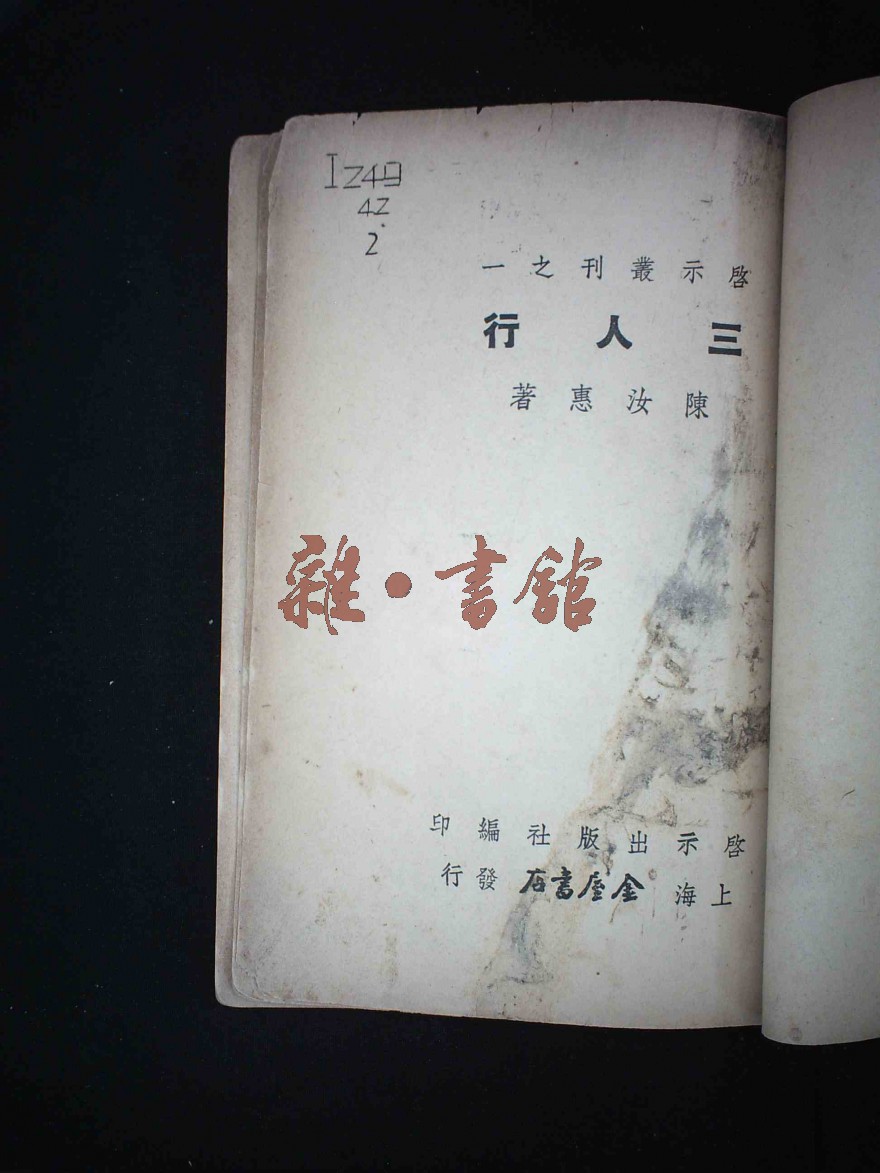 I249
42
2
啓示叢刊之一
三人行
陳汝惠著
雜·書館
啓示出版社編印
上海金屋書店發行